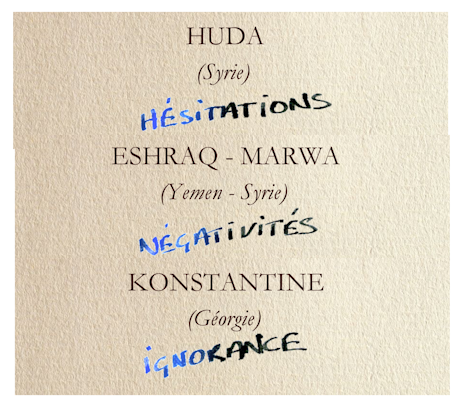 HUDA
(Syrie)
HÉSITATIONS
ESHRAQ - MARWA
(Yemen - Syrie)
NÉGATIVITÉS
KONSTANTINE
(Géorgie)
IGNORANCE